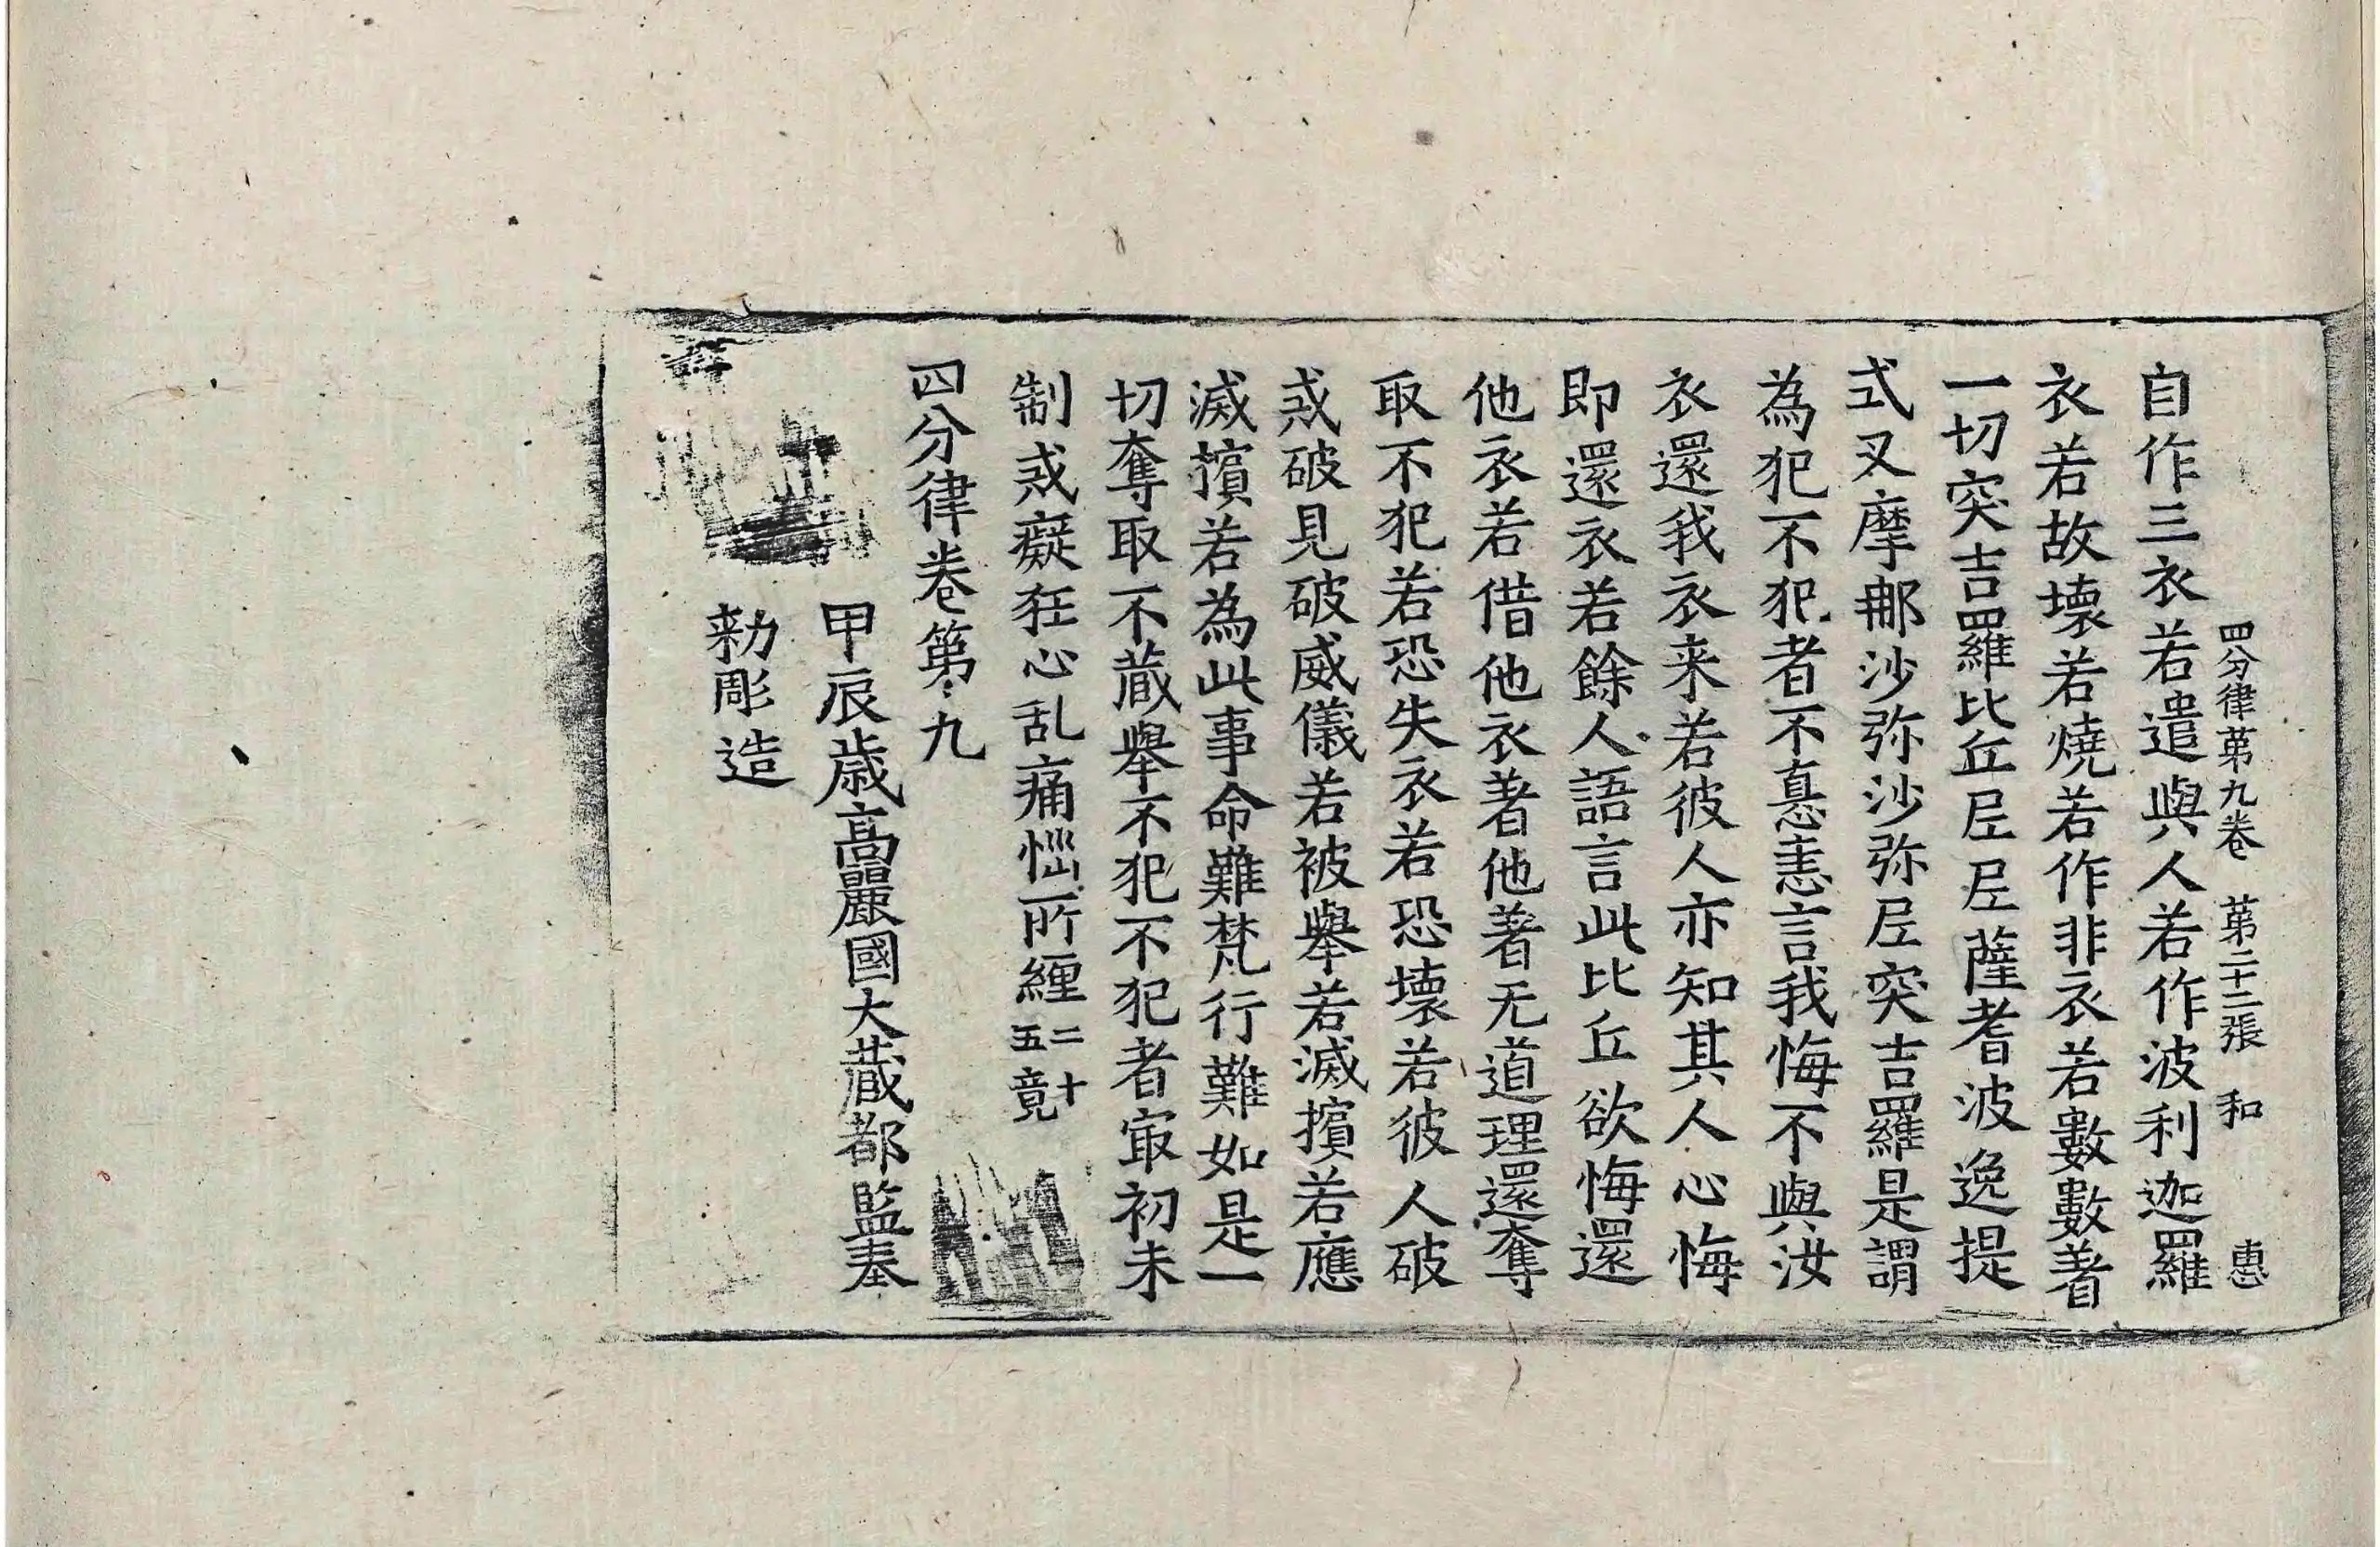 四分律第九卷 第二十二張 和 惠
自作三衣若遣與人若作波利迦羅
衣若故壞若燒若作非衣若數數著
一切突吉羅比丘尼尼薩耆波逸提
式叉摩那沙弥沙弥尼突吉羅是謂
為犯不犯者不恚恚言我悔不與汝
衣還我衣来若彼人亦知其人心悔
即還衣若餘人語言此比丘欲悔還
他衣若借他衣著他著无道理還奪
取不犯若恐失衣若恐壞若彼人破
戒破見破威儀若被舉若滅擯若應
滅擯若為此事命難梵行難如是一
切奪取不蔵舉不犯不犯者冣初未
制戒癡狂心乱痛惱所纏二十五竟
四分律卷第九
甲辰歳高麗國大蔵都監奉
勑彫造